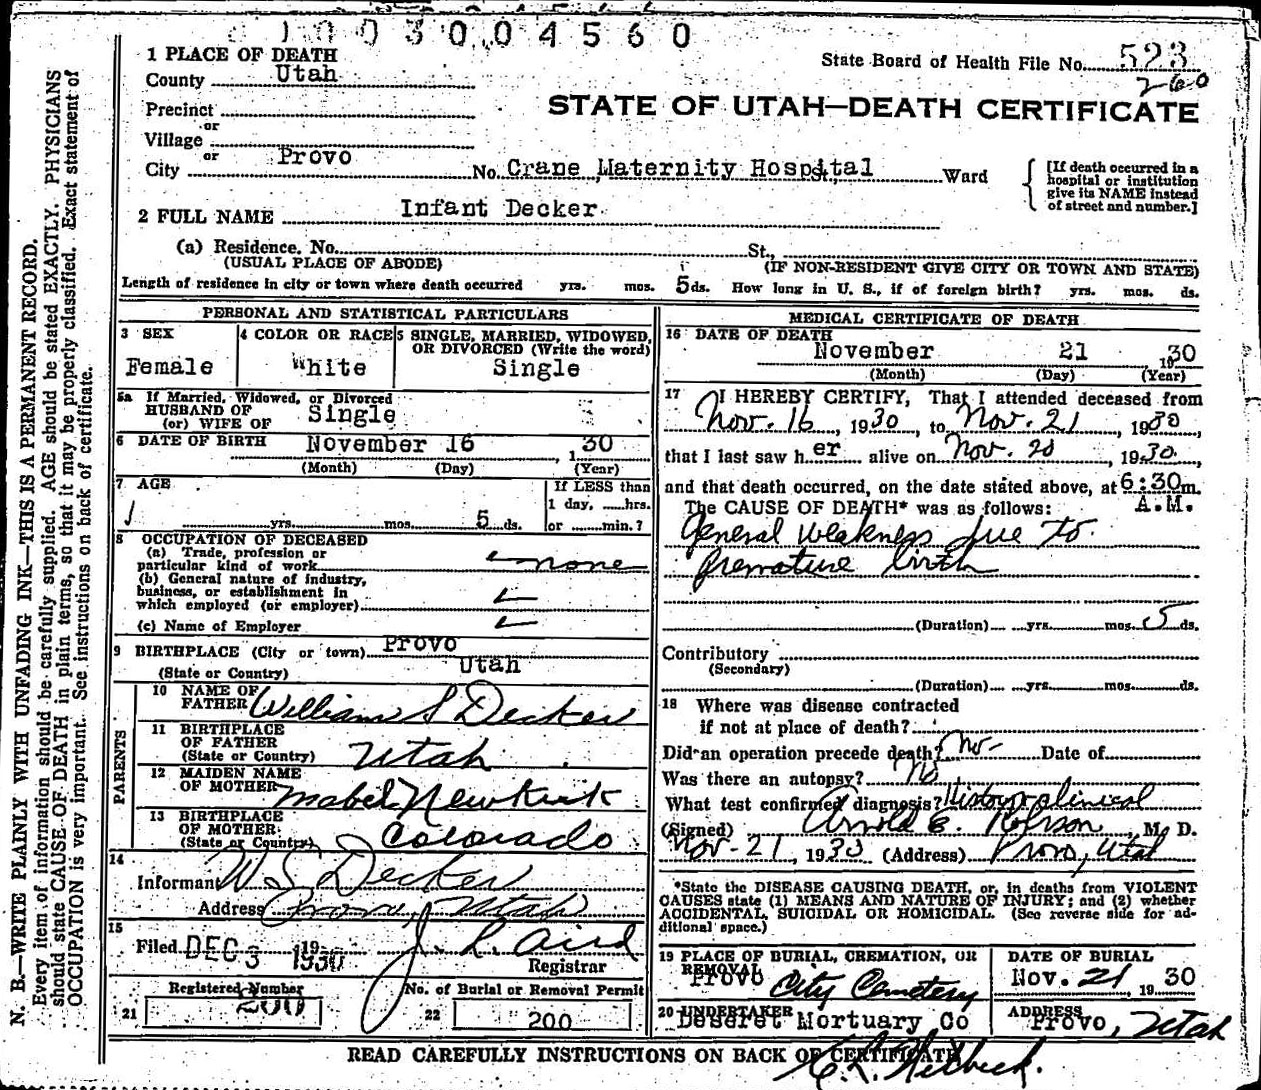 1003004560
1 PLACE OF DEATH
State Board of Health File No. 523
260
County Utah
STATE OF UTAH—DEATH CERTIFICATE
Precinct
or
Village
or
City Provo No. Crane Maternity Hospital Ward
[If death occurred in a
hospital or institution
give its NAME instead
of street and number.]
2 FULL NAME Infant Decker
(a) Residence. No. St.,
(USUAL PLACE OF ABODE) (IF NON-RESIDENT GIVE CITY OR TOWN AND STATE)
Length of residence in city or town where death occurred yrs. mos. 5 ds. How long in U. S., if of foreign birth? yrs. mos. ds.
PERSONAL AND STATISTICAL PARTICULARS
3 SEX
Female
4 COLOR OR RACE
White
5 SINGLE, MARRIED, WIDOWED,
OR DIVORCED (Write the word)
Single
5a If Married, Widowed, or Divorced
HUSBAND OF
(or) WIFE OF Single
6 DATE OF BIRTH November 16 1 30
(Month) (Day) (Year)
7 AGE
yrs. mos. 5 ds.
If LESS than
1 day, hrs.
or min.?
8 OCCUPATION OF DECEASED
(a) Trade, profession or
particular kind of work none
(b) General nature of industry,
business, or establishment in
which employed (or employer)
(c) Name of Employer
9 BIRTHPLACE (City or town) Provo
(State or Country) Utah
PARENTS
10 NAME OF
FATHER William S Decker
11 BIRTHPLACE
OF FATHER
(State or Country) Utah
12 MAIDEN NAME
OF MOTHER Mabel Newkirk
13 BIRTHPLACE
OF MOTHER
(State or Country) Colorado
14
Informant W S Decker
Address Provo, Utah
15
Filed DEC 3 1930 J. L. Aird
Registrar
Registered Number
21 200
No. of Burial or Removal Permit
22 200
MEDICAL CERTIFICATE OF DEATH
16 DATE OF DEATH
November 21 1930
(Month) (Day) (Year)
17 I HEREBY CERTIFY, That I attended deceased from
Nov. 16, 1930, to Nov. 21, 1930,
that I last saw her alive on Nov. 20, 1930,
and that death occurred, on the date stated above, at 6:30 m.
A.M.
The CAUSE OF DEATH* was as follows:
General weakness due to
premature birth
(Duration) yrs. mos. 5 ds.
Contributory
(Secondary)
(Duration) yrs. mos. ds.
18 Where was disease contracted
if not at place of death?
Did an operation precede death? No Date of
Was there an autopsy? No
What test confirmed diagnosis? History clinical
(Signed) Arnold E. Robison, M. D.
Nov. 21, 1930 (Address) Provo, Utah
*State the DISEASE CAUSING DEATH, or, in deaths from VIOLENT
CAUSES state (1) MEANS AND NATURE OF INJURY; and (2) whether
ACCIDENTAL, SUICIDAL OR HOMICIDAL. (See reverse side for ad-
ditional space.)
19 PLACE OF BURIAL, CREMATION, OR
REMOVAL
Provo City Cemetery
DATE OF BURIAL
Nov. 21 19 30
20 UNDERTAKER
Deseret Mortuary Co
ADDRESS
Provo, Utah
READ CAREFULLY INSTRUCTIONS ON BACK OF CERTIFICATE
N. B.—WRITE PLAINLY WITH UNFADING INK—THIS IS A PERMANENT RECORD.
Every item of information should be carefully supplied. AGE should be stated EXACTLY. PHYSICIANS
should state CAUSE OF DEATH in plain terms, so that it may be properly classified. Exact statement of
OCCUPATION is very important. See instructions on back of certificate.